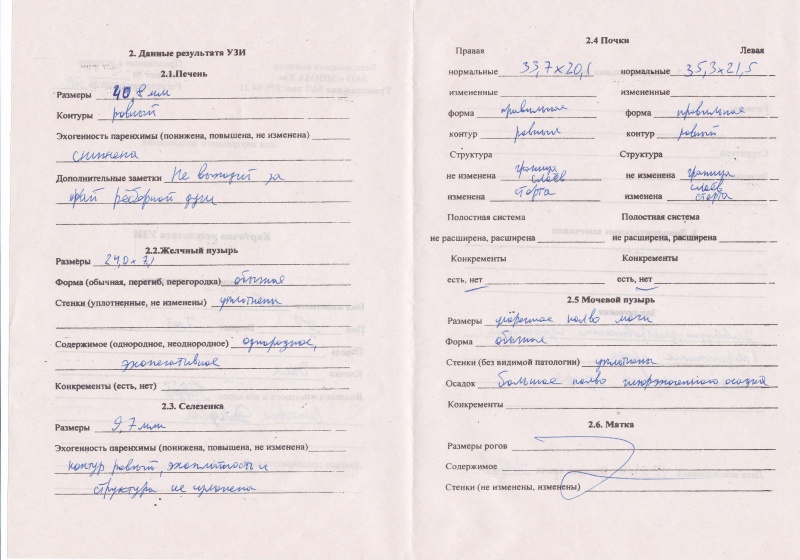 2. Данные результата УЗИ
2.1.Печень
Размеры 40,8 мм
Контуры ровный
Эхогенность паренхимы (понижена, повышена, не изменена)
снижена
Дополнительные заметки Не выходит за
край рёберной дуги
2.2.Желчный пузырь
Размеры 24,0 х 7,1
Форма (обычная, перегиб, перегородка) обычная
Стенки (уплотненные, не изменены) уплотнены
Содержимое (однородное, неоднородное) однородное,
эхонегативное
Конкременты (есть, нет)
2.3. Селезенка
Размеры 9,7 мм
Эхогенность паренхимы (понижена, повышена, не изменена)
контур ровный, эхоплотность и
структура не изменена
2.4 Почки
Правая Левая
нормальные 33,7 х 20,1 нормальные 35,3 х 21,5
измененные измененные
форма правильная форма правильная
контур ровный контур ровный
Структура Структура
не изменена граница слоёв не изменена граница слоёв
изменена стерта изменена стерта
Полостная система Полостная система
не расширена, расширена не расширена, расширена
Конкременты Конкременты
есть, нет есть, нет
2.5 Мочевой пузырь
Размеры умеренное кол-во мочи
Форма обычная
Стенки (без видимой патологии) уплотнены
Осадок большое кол-во гиперэхогенного осадка
Конкременты
2.6. Матка
Размеры рогов
Содержимое
Стенки (не изменены, изменены)